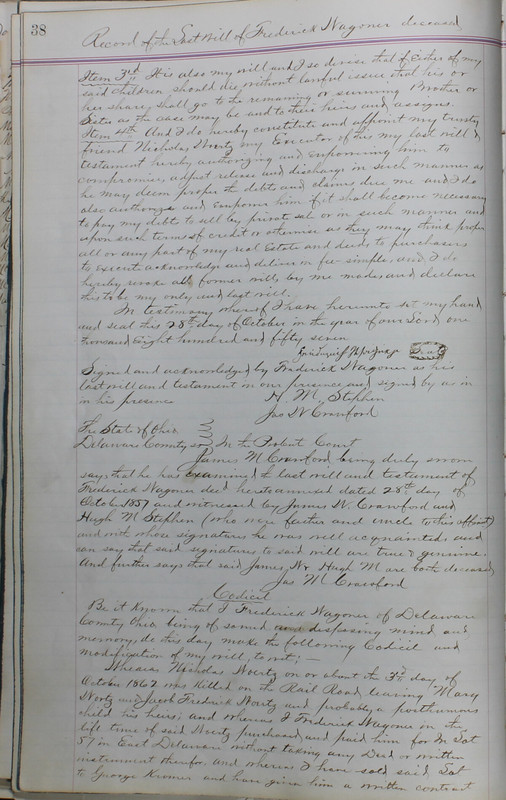 38
Record of the Last Will of Frederick Wagoner deceased
Item 3rd It is also my will and I so devise that if Either of my
said children should die without lawful issue that his or
her share shall go to the remaining or surviving Brother or
Sister as the case may be and to their heirs and assigns.
Item 4th And I do hereby constitute and appoint my trusty
friend Nicholas Wortz my Executor of this my last will &
testament hereby authorizing and empowering him to
compromise adjust release and discharge in such manner as
he may deem proper the debts and claims due me and I do
also authorize and empower him if it shall become necessary
to pay my debts to sell by private sale or in such manner and
upon such terms of credit or otherwise as they may think proper
all or any part of my real Estate and deeds to purchasers
to execute acknowledge and deliver in fee simple, and I do
hereby revoke all former wills by me made, and declare
this to be my only and last will.
In testimony whereof I have hereunto set my hand
and seal this 28th day of October in the year of our Lord one
thousand Eight hundred and fifty seven
Seal
Signed and acknowledged by Frederick Wagoner as his
last will and testament in our presence and signed by us in
in his presence H. M. Stephen
Jas W Crawford
The State of Ohio
Delaware County ss In the Probate Court
James M Crawford being duly sworn
says that he has examined the last will and testament of
Frederick Wagoner decd hereto annexed dated 28th day of
October 1857 and witnessed by James W. Crawford and
Hugh M Stephen (who were father and uncle to this affiant)
and with whose signatures he was well acquainted and
can say that said signatures to said will are true & genuine.
And further says that said James W & Hugh M are both deceased
Jas M Crawford
Codicil
Be it Known that I Frederick Wagoner of Delaware
County Ohio being of sound and disposing mind and
memory, do this day make the following Codicil and
modification of my will, to wit; —
Whereas Nicholas Wortz on or about the 3rd day of
October 1862 was Killed on the Rail Road, leaving Mary
Wortz and Jacob Frederick Wortz and probably a posthumous
child his heirs; and whereas I Frederick Wagoner in the
life time of said Wortz purchased and paid him for In Lot
57 in East Delaware without taking any Deed or written
instrument therefor, and whereas I have sold said Lot
to George Kromer and have given him a written contract